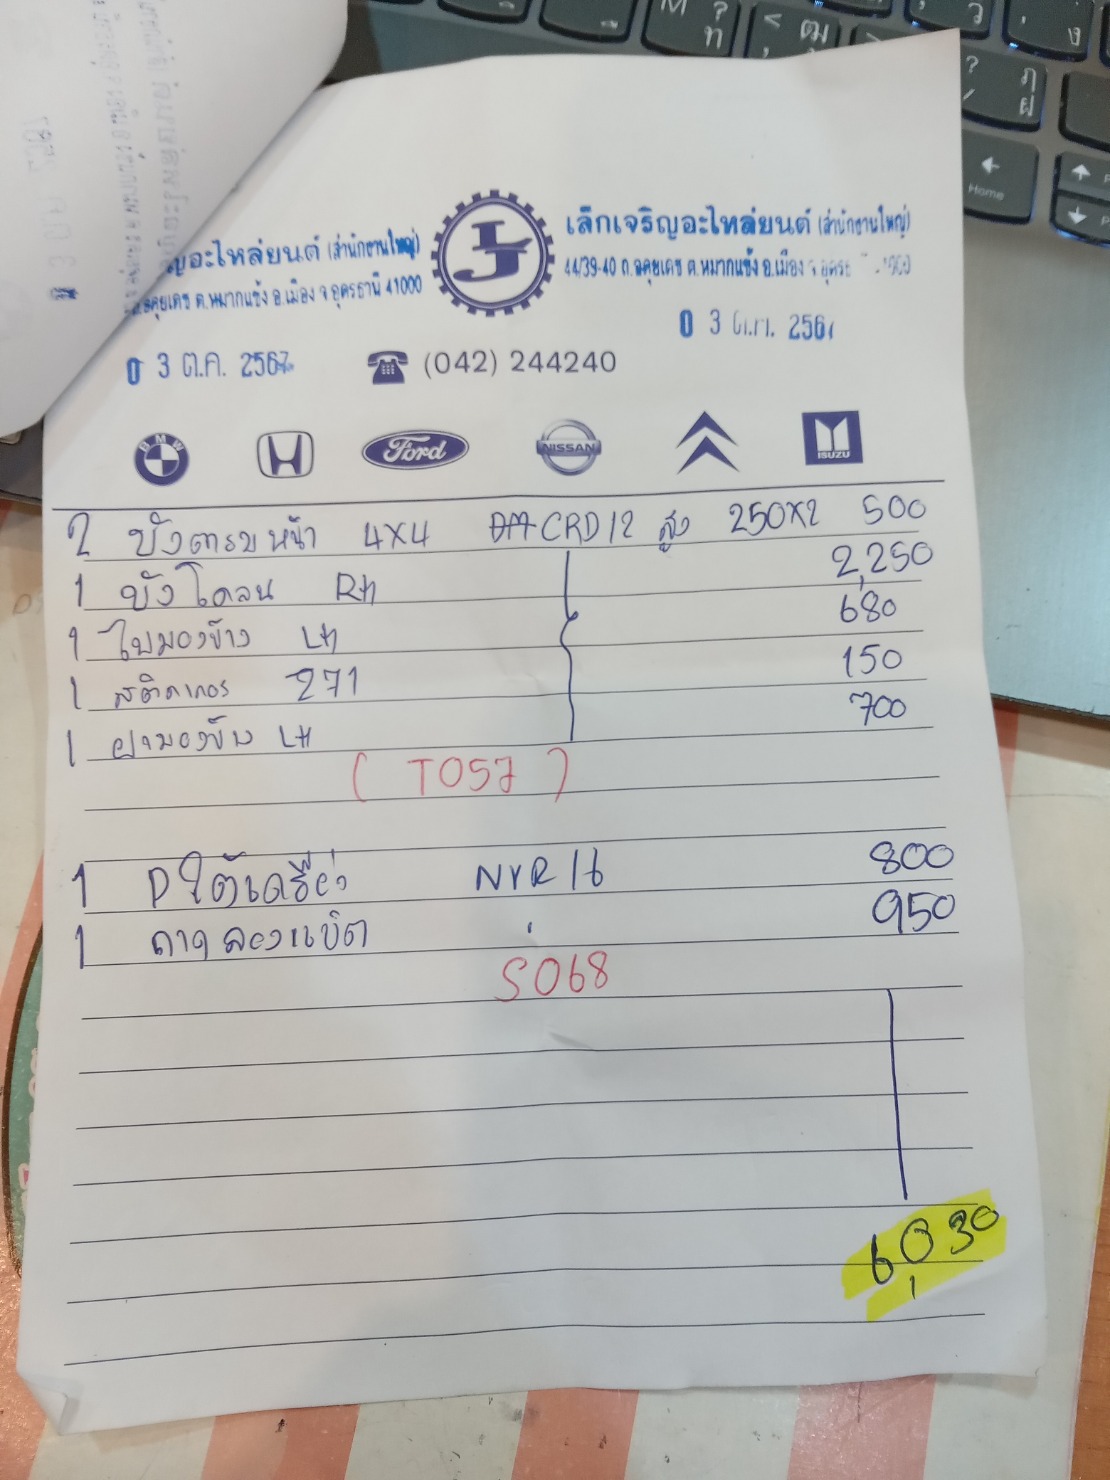 เล็กเจริญอะไหล่ยนต์ (สำนักงานใหญ่)
44/39-40 ถ.อดุยเดช ต.หมากแข้ง อ.เมือง จ.อุดร
ญอะไหล่ยนต์ (สำนักงานใหญ่)
ต.หมากแข้ง อ.เมือง จ.อุดรธานี 41000
0 3 ต.ค. 2567
0 3 ต.ค. 2567
(042) 244240
BMW Ford NISSAN ISUZU
2 บังตารบหน้า 4X4 CRD12 สูง 250X2 500
1 บังโคลน RH 2,250
1 ไบมองข้าง LH 680
1 สติกเกอร 271 150
1 ฝามองข้าง LH 700
(T057)
1 P ใต้เครื่อง NYR16 800
1 ถาดลองแบ็ต 950
S068
6,030
Home